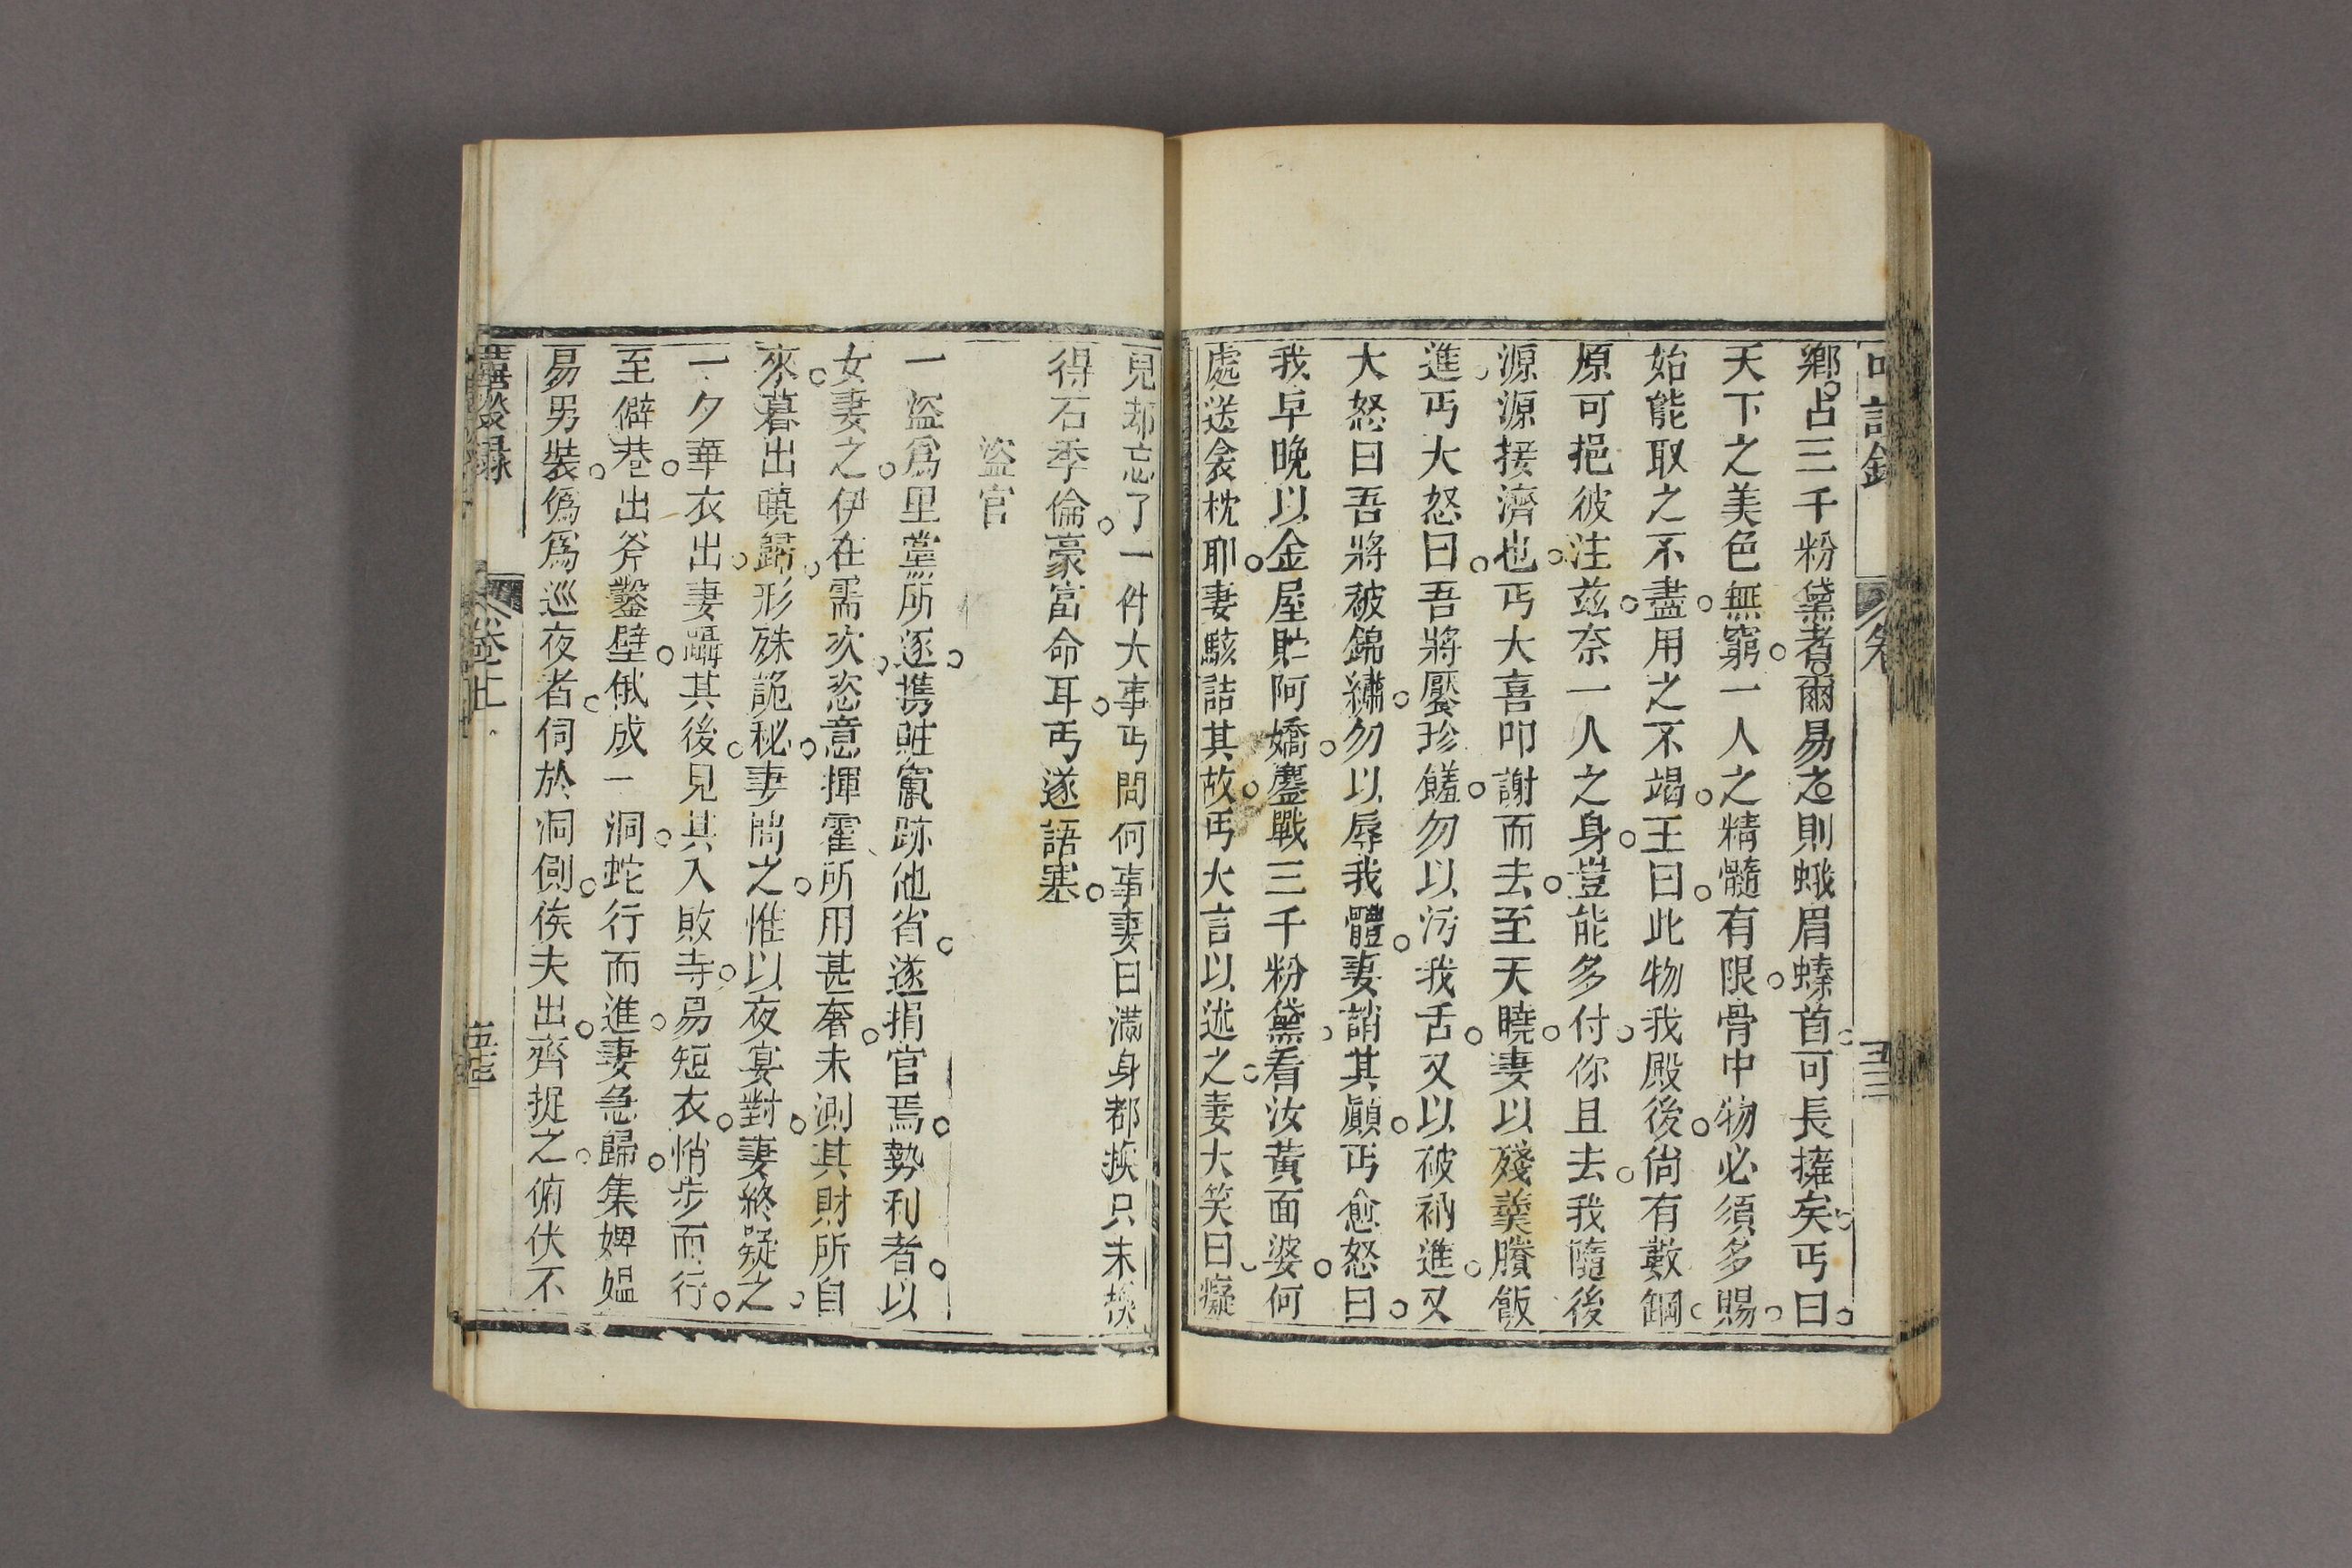 鄉占三千粉黛者爾易之則蛾眉螓首可長擁矣丐曰
天下之美色無窮一人之精髓有限骨中物必須多賜
始能取之不盡用之不竭王曰此物我殿後尙有數鋼
原可挹彼注玆奈一人之身豈能多付你且去我隨後
源源接濟也丐大喜叩謝而去至天曉妻以殘羹賸飯
進丐大怒曰吾將饜珍饈勿以污我舌又以破衲進又
大怒曰吾將被錦繡勿以辱我體妻誚其顚丐愈怒曰
我早晚以金屋貯阿嬌鏖戰三千粉黛看汝黃面婆何
處送衾枕耶妻駭詰其故丐大言以述之妻大笑曰癡
見却忘了一件大事丐問何事妻曰滿身都換只未換
得石季倫豪富命耳丐遂語塞
盜官
一盜爲里黨所逐携賍竄跡他省遂捐官焉勢利者以
女妻之伊在需次恣意揮霍所用甚奢未測其財所自
來暮出曉歸形殊詭秘妻問之惟以夜宴對妻終疑之
一夕華衣出妻躡其後見其入敗寺易短衣悄步而行
至僻巷出斧鑿壁俄成一洞蛇行而進妻急歸集婢媼
易男裝僞爲巡夜者伺於洞側俟夫出齊捉之俯伏不
卷上